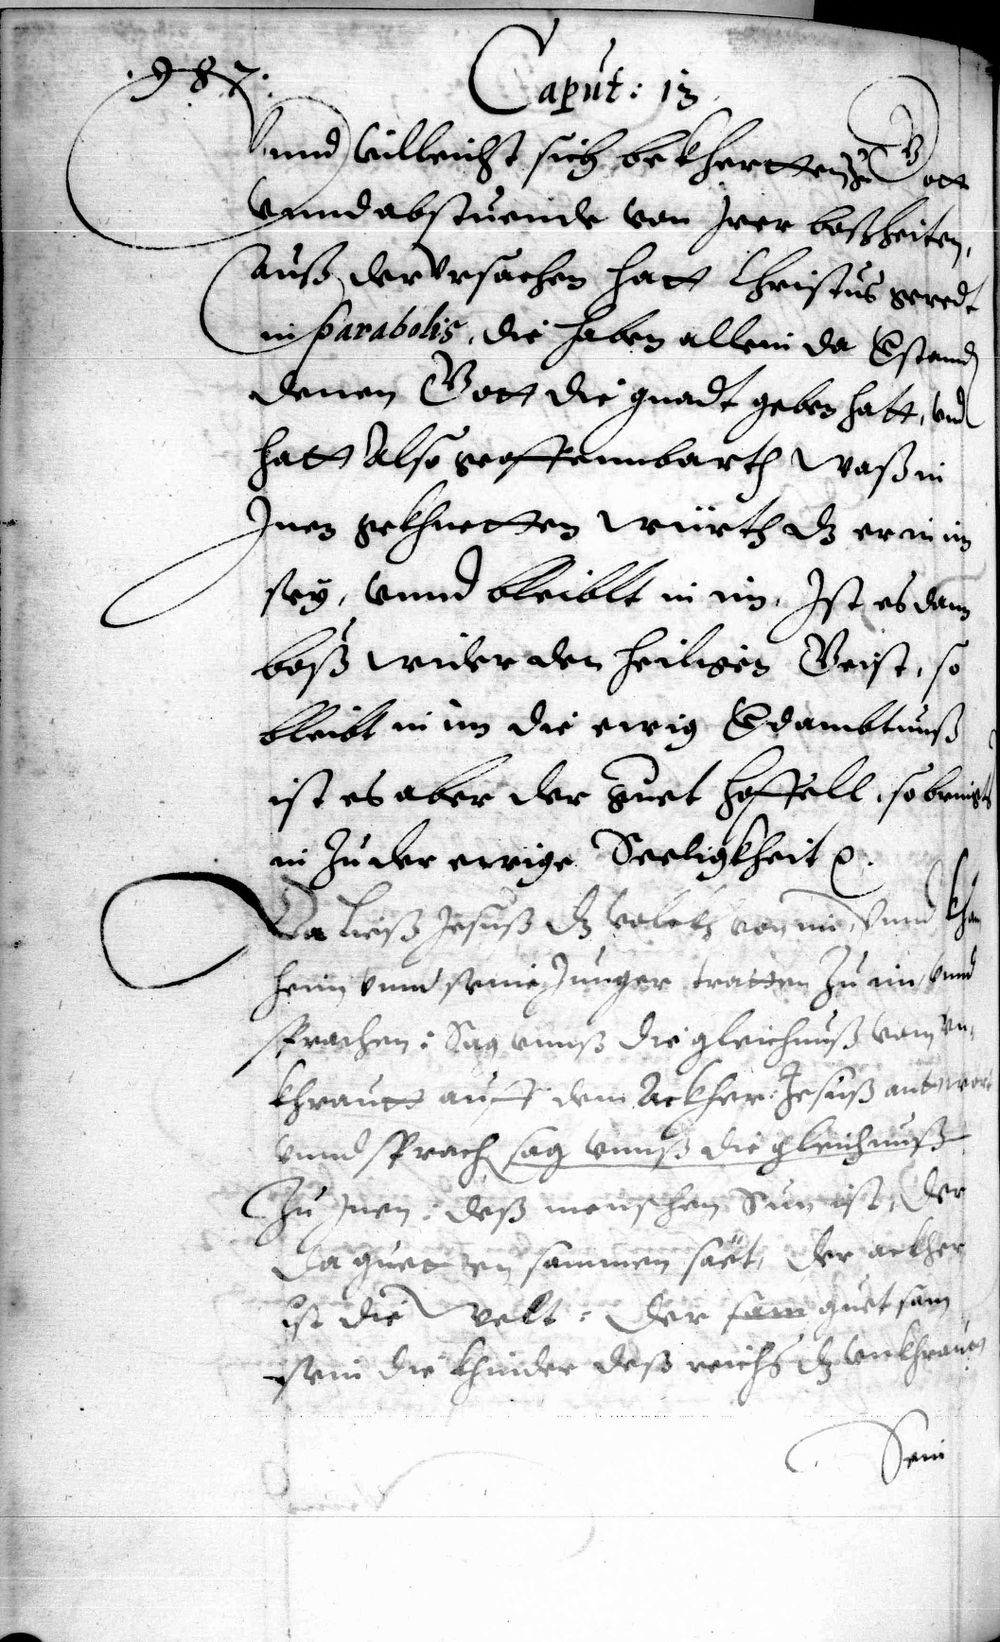 .987.
Caput: 13
Unnd villeicht sich bekhertten zu Gott
unnd abstuende von irer boßheiten,
auß der ursachen hatt Christus geredt
in parabolis, die haben allein da verstand
denen Gott die gnadt geben hatt, und
hatt also geoffennbarth waß in
Inen gekhnetten würth dz er in im
sey, unnd bleiblt in im, Ist es dann
boß wider den heiligen Geist, so
bleibt in im die ewig verdambtnuß
ist es aber der guet heffell, so bringts
in zu der ewige Seeligkheit
Da ließ Jesuß dz volckh von im, unnd kham
heim unnd seine Junger tratten zu im, unnd
sprachen: Sag unnß die gleichnuß vom un„
khrautt auff dem Ackher: Jesuß antwort
unnd sprach sag unnß die gleichnuß
zu Inen: deß menschen Sun ist, der
da guetten sammen säet, der ackher
ist die Welt: der sam guet sam
sein die khinder deß reichs dz unkhrautt
Sein